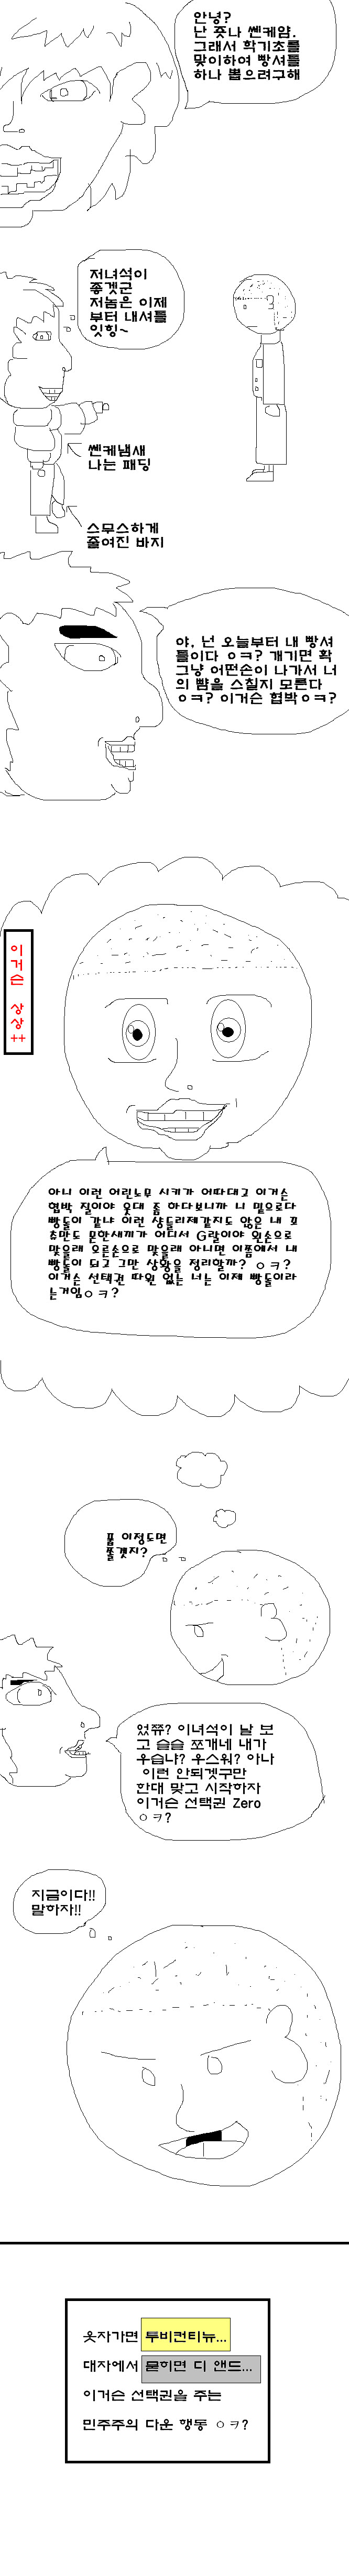 안녕?
난 쥿나 쎈케얌.
그래서 학기초를
맞이하여 빵셔틀
하나 뽑으려구해
저녀석이
좋겟군
저놈은 이제
부터 내셔틀
잇힝~
쎈케냄새
나는 패딩
스무스하게
줄여진 바지
야, 넌 오늘부터 내 빵셔
틀이다 ㅇㅋ? 개기면 확
그냥 어떤손이 나가서 너
의 뺨을 스칠지 모른다
ㅇㅋ? 이거슨 협박ㅇㅋ?
이거슨 상상++
아니 이런 어린노무 시키가 어따대고 이거슨
협박 질이야 웃대 좀 하다보니까 니 밑으로다
빵돌이 같냐 이런 샹들리제같지도 않은 내 꼬
추만도 못한새끼가 어디서 G랄이야 왼손으로
맞을래 오른손으로 맞을래 아니면 이쯤에서 내
빵돌이 되고 그만 상황을 정리할까? ㅇㅋ?
이거슨 선택권 따윈 없는 너는 이제 빵돌이라
는거임ㅇㅋ?
풉 이정도면
쫄겟지?
었쮸? 이녀석이 날 보
고 슬슬 쪼개네 내가
우습냐? 우스워? 아나
이런 안되겟구만
한대 맞고 시작하자
이거슨 선택권 Zero
ㅇㅋ?
지금이다!!
말하자!!
웃자가면 투비컨티뉴...
대자에서 묻히면 디 앤드...
이거슨 선택권을 주는
민주주의 다운 행동 ㅇㅋ?